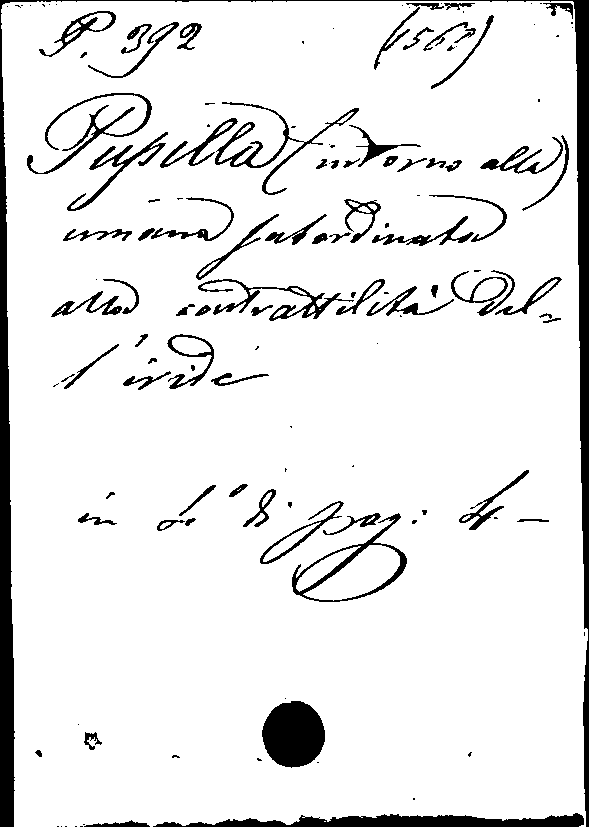 P. 392 (1560)
Pupilla (intorno alla)
umana subordinata
alla contrattilità del-
l'iride
in 4.º di pag: 4. —